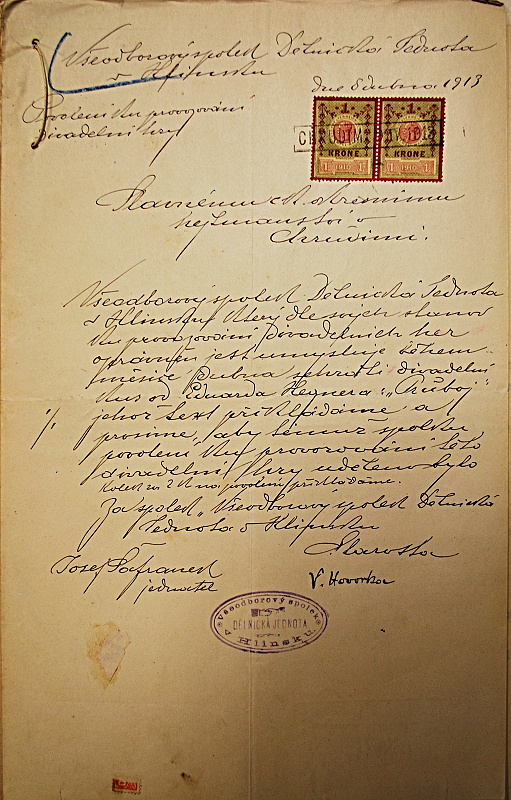 Všeodborový spolek Dělnická Jednota
v Hlinsku
dne 8 dubna 1913
Povolení ku provozování
divadelní hry
1
1
KRONE
KRONE
1 1910 1
1 1910 1
CHRUDIM
Slavnému c.k. okresnímu
hejtmanství v
Chrudimi.
Všeodborový spolek Dělnická Jednota
v Hlinsku který dle svých stanov
ku provozování divadelních her
oprávněn jest umysluje během
měsíce Dubna sehráti divadelní
kus od Eduarda
jehož text přikládáme a
prosíme, aby témuž spolku
povolení ku provozování této
divadelní hry uděleno bylo
Kolek za 2 K na povolení přikládáme.
Za spolek „Všeodborový spolek Dělnická
Jednota v Hlinsku
Starosta
Josef Šafránek
jednatel
V. Hovorka
Všeodborový spolek
DĚLNICKÁ JEDNOTA
v Hlinsku.